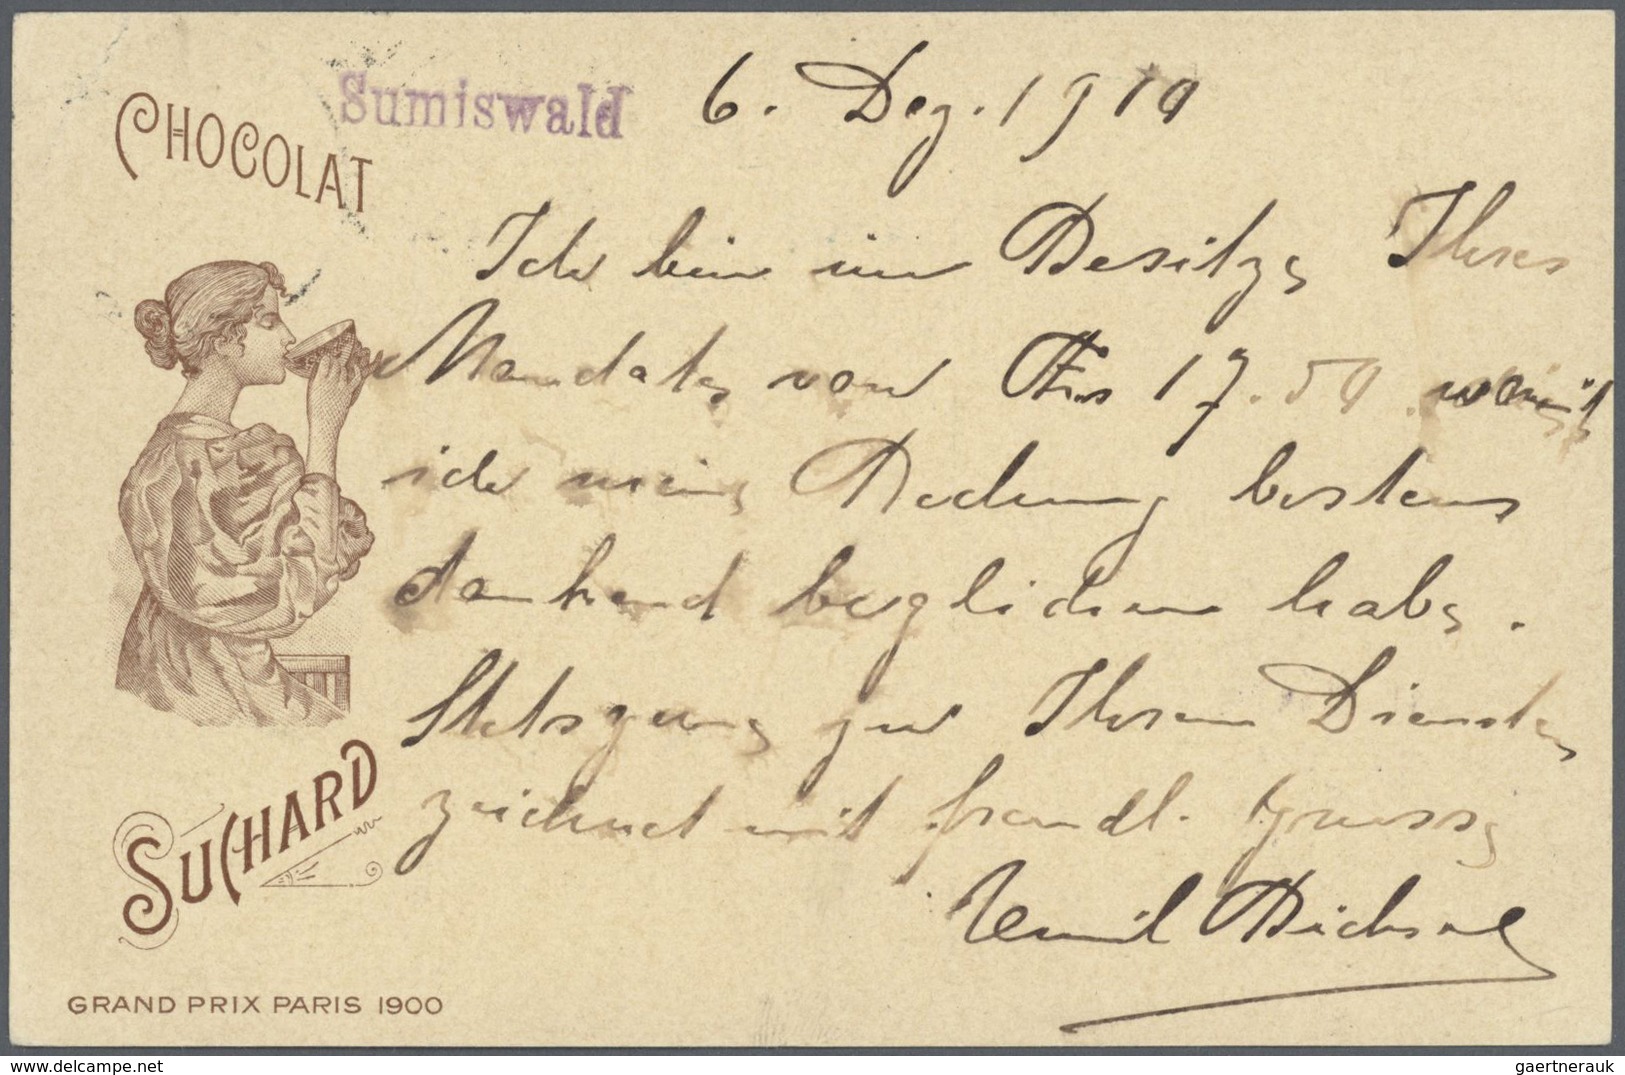 CHOCOLAT
Sumiswald 6. Dez. 1910
Ich bin im Besitze Ihres
Mandates von Frs 17.50 womit
ich meine Rechnung bestens
dankend beglichen habe.
Stetsgerne zu Ihren Diensten
zeichnet mit freundl. Grusse
Emil
SUCHARD
GRAND PRIX PARIS 1900
www.oldthing.com
gaertnerauk